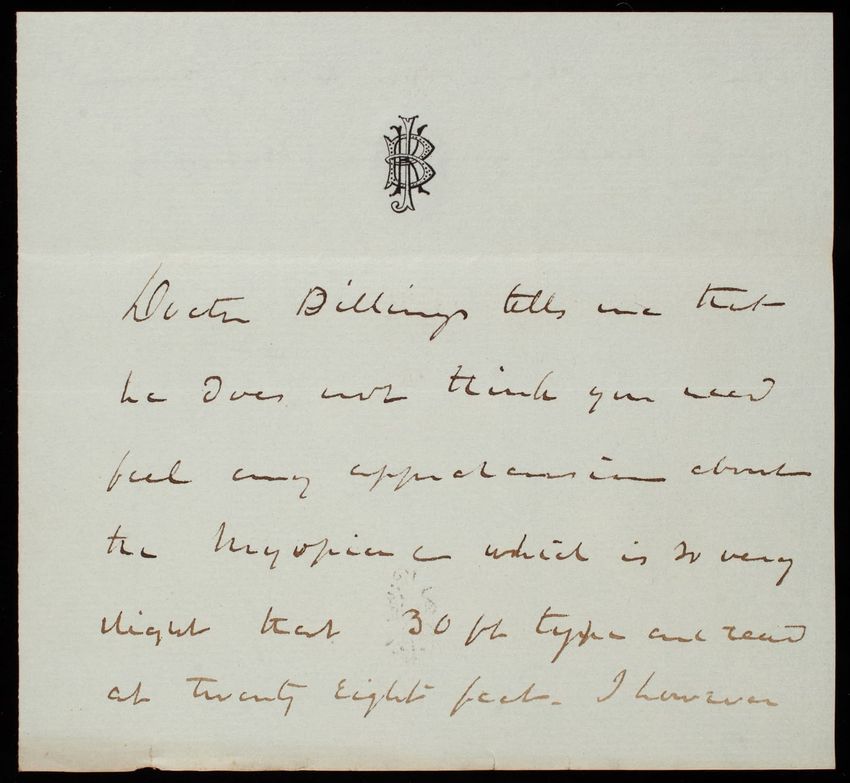 Doctor Billings tells me that
he does not think you need
feel any apprehension about
the Myopia which is so very
slight that 30 ft type are read
at twenty Eight feet. I however